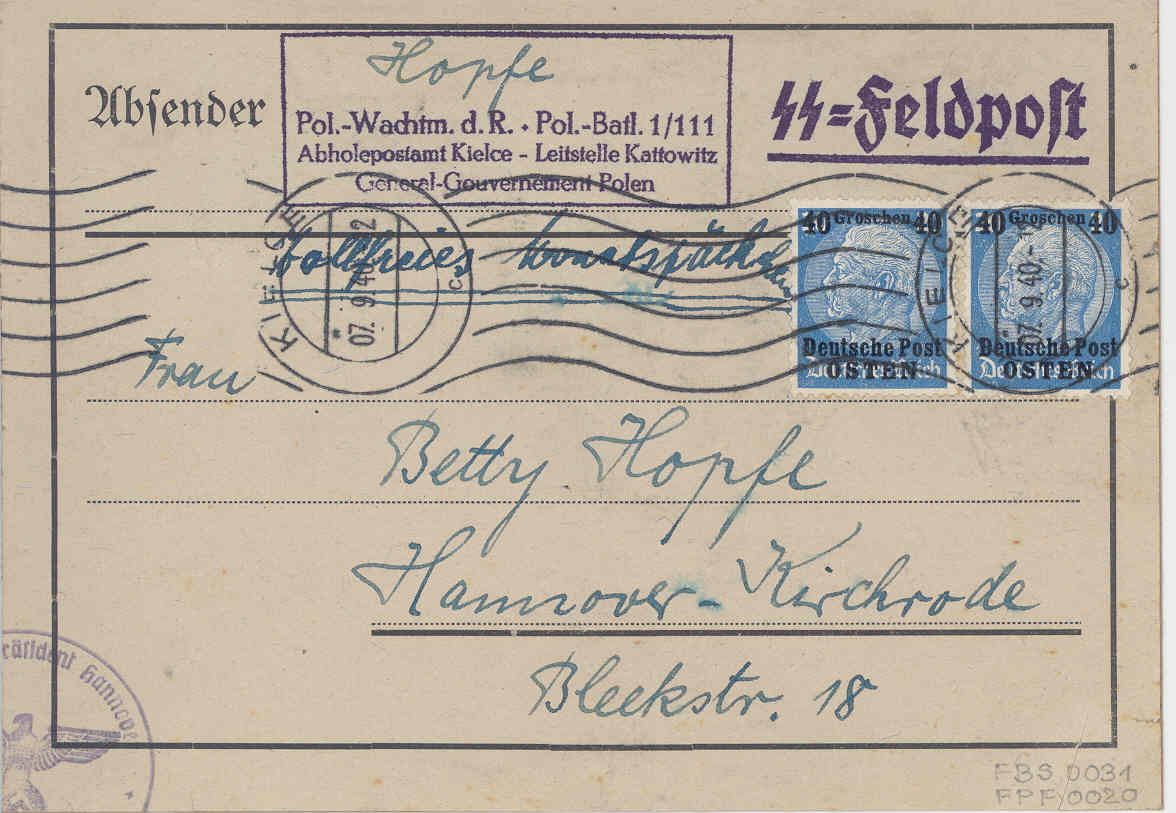 Hopfe
Absender
Pol.-Wachtm. d. R. • Pol.-Batl. 1/111
Abholepostamt Kielce - Leitstelle Kattowitz
General-Gouvernement Polen
SS=Feldpost
KIELCE
07. 9. 40.-12
c
40 Groschen 40
Deutsche Post
OSTEN
Deutsches Reich
40 Groschen 40
Deutsche Post
OSTEN
Deutsches Reich
KIELCE
07. 9. 40.-12
c
Zollfreies
Frau
Betty Hopfe
Hannover-Kirchrode
Bleekstr. 18
räsident Hannove
FBS 0031
FPF 0020